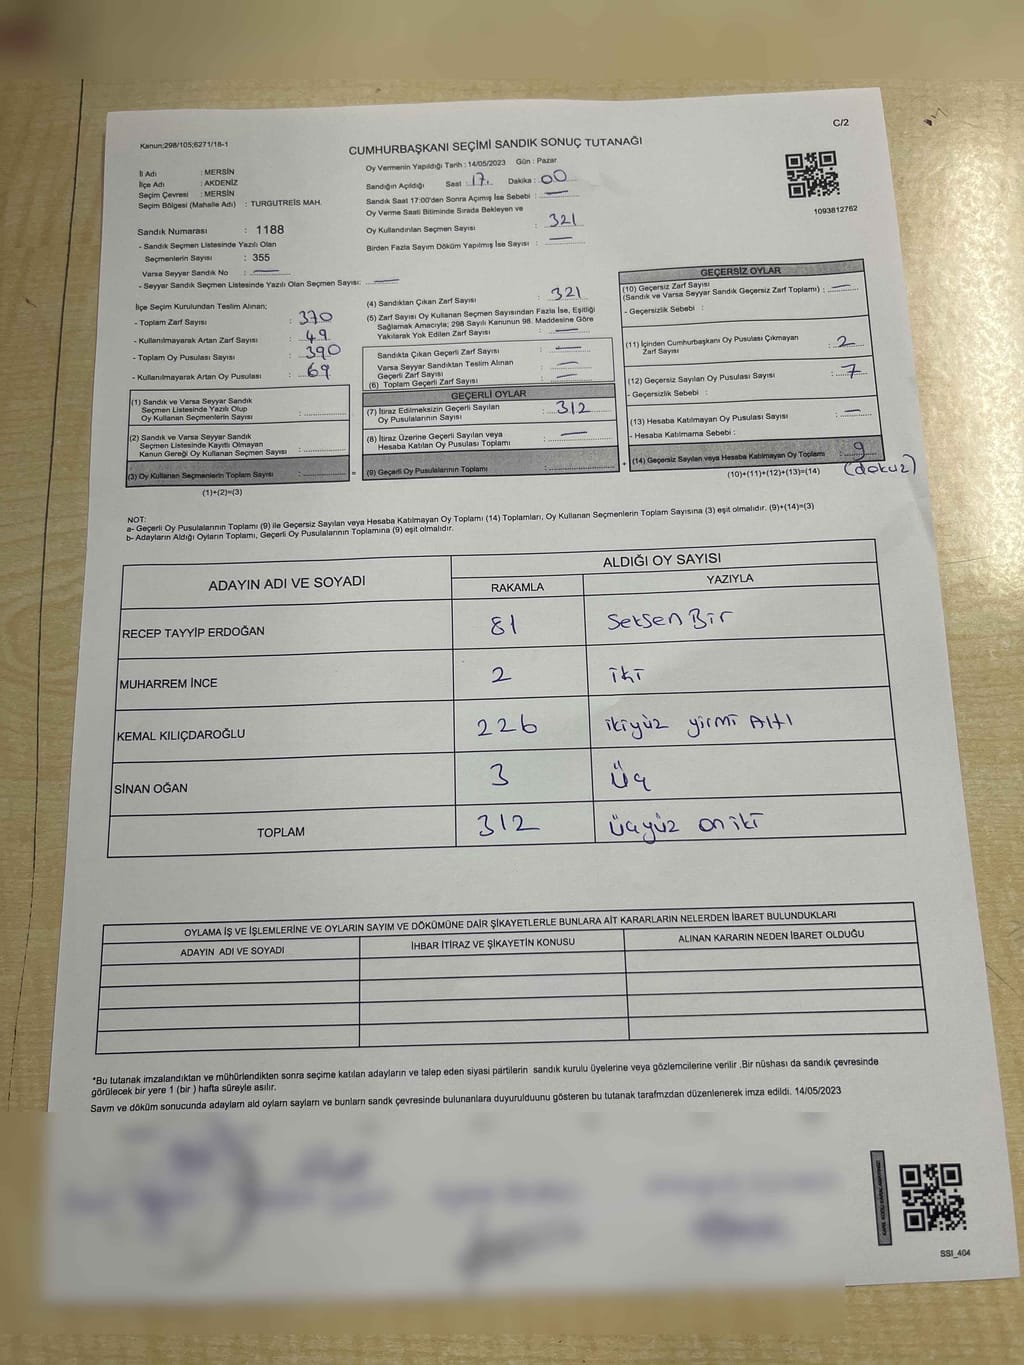 C/2
Kanun:298/105;6271/18-1
CUMHURBAŞKANI SEÇİMİ SANDIK SONUÇ TUTANAĞI
İl Adı : MERSİN
İlçe Adı : AKDENİZ
Seçim Çevresi : MERSİN
Seçim Bölgesi (Mahalle Adı) : TURGUTREİS MAH.
Sandık Numarası : 1188
- Sandık Seçmen Listesinde Yazılı Olan
Seçmenlerin Sayısı : 355
Varsa Seyyar Sandık No : —
- Seyyar Sandık Seçmen Listesinde Yazılı Olan Seçmen Sayısı: —
Oy Vermenin Yapıldığı Tarih : 14/05/2023 Gün : Pazar
Sandığın Açıldığı Saat : 17. Dakika : 00
Sandık Saat 17:00'den Sonra Açımış İse Sebebi : —
Oy Verme Saati Bitiminde Sırada Bekleyen ve
Oy Kullandırılan Seçmen Sayısı : 321
Birden Fazla Sayım Döküm Yapılmış İse Sayısı : —
1093812762
İlçe Seçim Kurulundan Teslim Alınan;
- Toplam Zarf Sayısı : 370
- Kullanılmayarak Artan Zarf Sayısı : 49
- Toplam Oy Pusulası Sayısı : 390
- Kullanılmayarak Artan Oy Pusulası : 69
(1) Sandık ve Varsa Seyyar Sandık
Seçmen Listesinde Yazılı Olup
Oy Kullanan Seçmenlerin Sayısı :
(2) Sandık ve Varsa Seyyar Sandık
Seçmen Listesinde Kayıtlı Olmayan
Kanun Gereği Oy Kullanan Seçmen Sayısı :
(3) Oy Kullanan Seçmenlerin Toplam Sayısı : =
(1)+(2)=(3)
(4) Sandıktan Çıkan Zarf Sayısı : 321
(5) Zarf Sayısı Oy Kullanan Seçmen Sayısından Fazla İse, Eşitliği
Sağlamak Amacıyla; 298 Sayılı Kanunun 98. Maddesine Göre
Yakılarak Yok Edilen Zarf Sayısı : —
Sandıkta Çıkan Geçerli Zarf Sayısı : —
Varsa Seyyar Sandıktan Teslim Alınan
Geçerli Zarf Sayısı : —
(6) Toplam Geçerli Zarf Sayısı : —
GEÇERLİ OYLAR
(7) İtiraz Edilmeksizin Geçerli Sayılan
Oy Pusulalarının Sayısı : 312
(8) İtiraz Üzerine Geçerli Sayılan veya
Hesaba Katılan Oy Pusulası Toplamı : —
(9) Geçerli Oy Pusulalarının Toplamı : +
GEÇERSİZ OYLAR
(10) Geçersiz Zarf Sayısı
(Sandık ve Varsa Seyyar Sandık Geçersiz Zarf Toplamı) : —
- Geçersizlik Sebebi :
(11) İçinden Cumhurbaşkanı Oy Pusulası Çıkmayan
Zarf Sayısı : 2
(12) Geçersiz Sayılan Oy Pusulası Sayısı : 7
- Geçersizlik Sebebi :
(13) Hesaba Katılmayan Oy Pusulası Sayısı : —
- Hesaba Katılmama Sebebi :
(14) Geçersiz Sayılan veya Hesaba Katılmayan Oy Toplamı : 9
(dokuz)
(10)+(11)+(12)+(13)=(14)
NOT:
a- Geçerli Oy Pusulalarının Toplamı (9) ile Geçersiz Sayılan veya Hesaba Katılmayan Oy Toplamı (14) Toplamları, Oy Kullanan Seçmenlerin Toplam Sayısına (3) eşit olmalıdır. (9)+(14)=(3)
b- Adayların Aldığı Oyların Toplamı, Geçerli Oy Pusulalarının Toplamına (9) eşit olmalıdır.
ADAYIN ADI VE SOYADI
ALDIĞI OY SAYISI
RAKAMLA YAZIYLA
RECEP TAYYİP ERDOĞAN 81 SeksenBir
MUHARREM İNCE 2 iki
KEMAL KILIÇDAROĞLU 226 ikiyüz yirmi Altı
SİNAN OĞAN 3 Üç
TOPLAM 312 üçyüz oniki
OYLAMA İŞ VE İŞLEMLERİNE VE OYLARIN SAYIM VE DÖKÜMÜNE DAİR ŞİKAYETLERLE BUNLARA AİT KARARLARIN NELERDEN İBARET BULUNDUKLARI
ADAYIN ADI VE SOYADI İHBAR İTİRAZ VE ŞİKAYETİN KONUSU ALINAN KARARIN NEDEN İBARET OLDUĞU
*Bu tutanak imzalandıktan ve mühürlendikten sonra seçime katılan adayların ve talep eden siyasi partilerin sandık kurulu üyelerine veya gözlemcilerine verilir .Bir nüshası da sandık çevresinde
görülecek bir yere 1 (bir ) hafta süreyle asılır.
Sayım ve döküm sonucunda adaylam ald oylarn sayların ve bunların sandk çevresinde bulunanlara duyurulduunu gösteren bu tutanak tarafmzdan düzenlenerek imza edildi. 14/05/2023
SSI_404